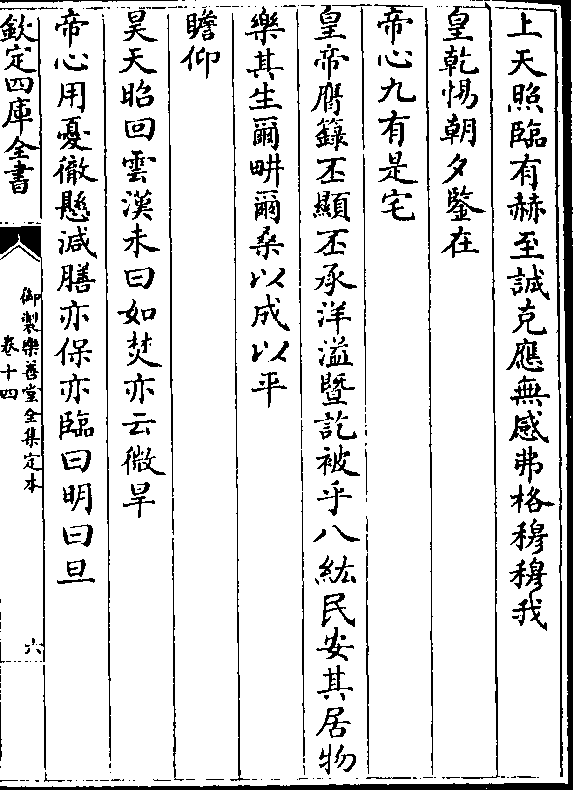 上天照臨有赫至誠克應無感弗格穆穆我
皇乾惕朝夕鑒在
帝心九有是宅
皇帝膺籙丕顯丕承洋溢暨訖被乎八紘民安其居物
樂其生爾畊爾桑以成以平
瞻仰
昊天昭回雲漢未曰如焚亦云微旱
帝心用憂徹懸減膳亦保亦臨曰明曰旦
欽定四庫全書
御製樂善堂全集定本
卷十四
六